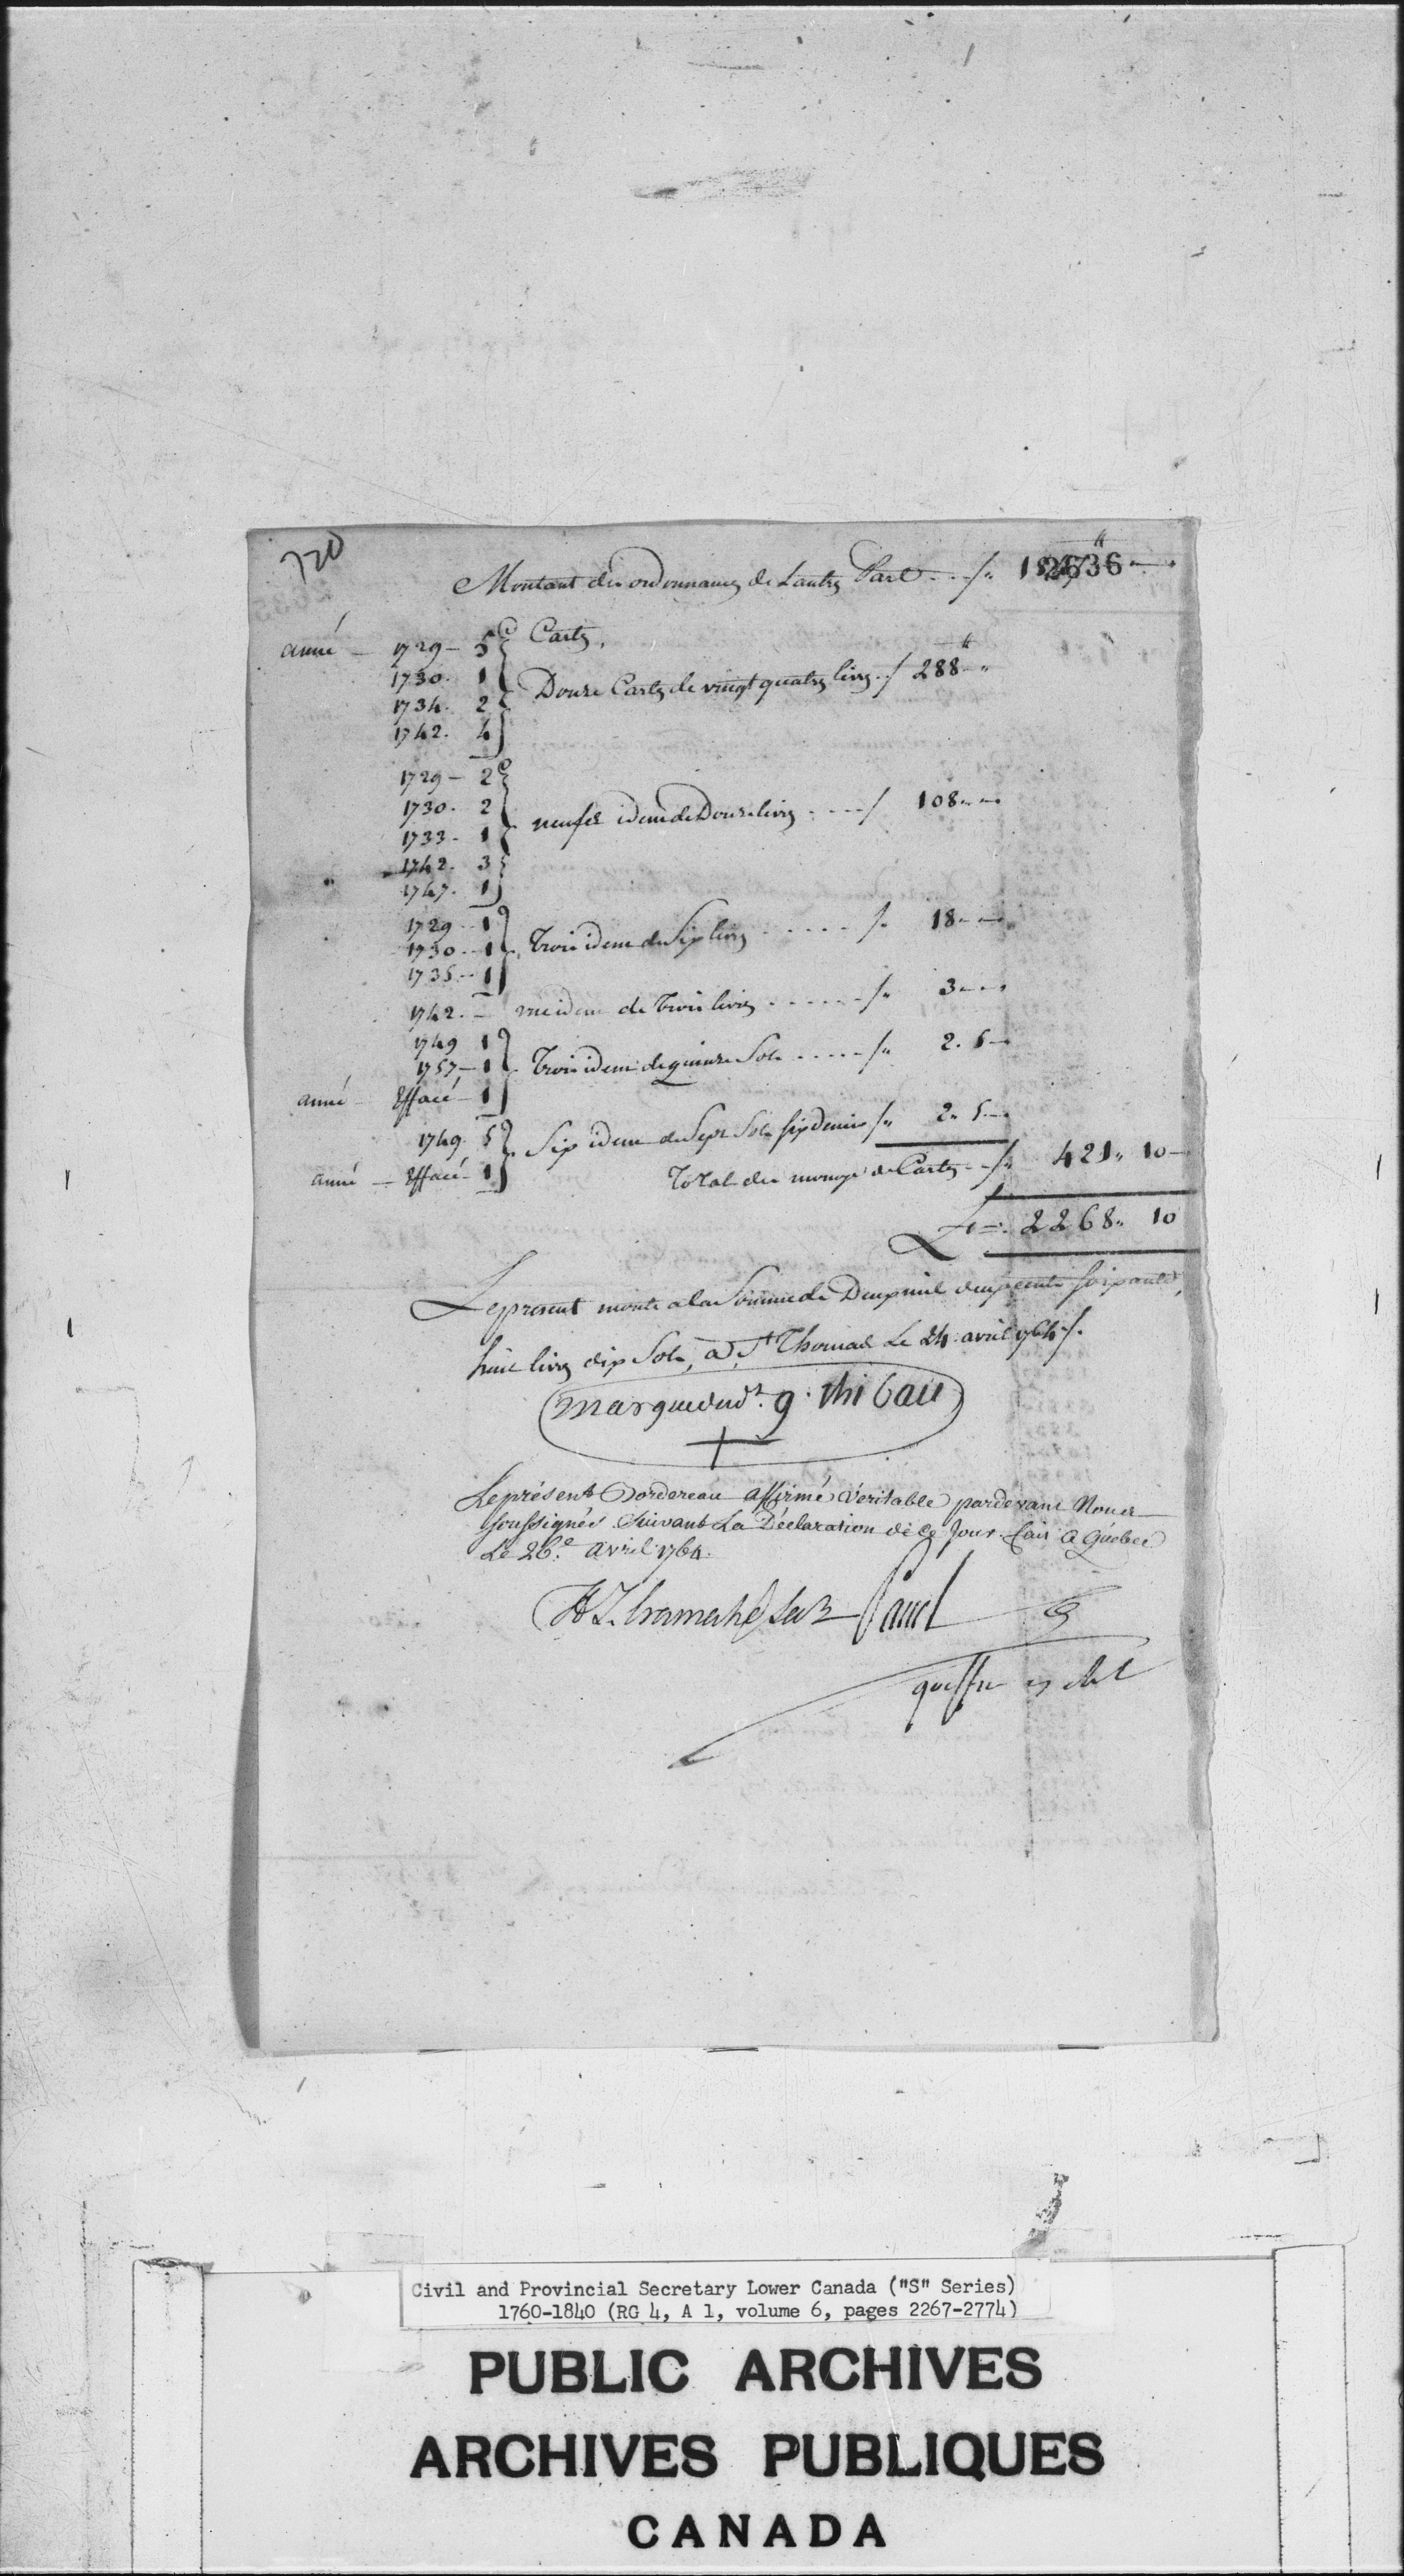 720
Montant des ordonnances de Lautre Part - - - /. 2636
Cartes.
année — 1729 — 5
1730. 1
1734. 2
1742. 4
Douze Cartes de vingt quatre livres . / 288 - "
1729 — 2
1730. 2
1733 - 1
1742. 3
1747. 1
neufs idem de Douze livres - - - - / 108 - -
1729 - 1
1730 - 1
1735 - 1
Trois idem de Six livres - - - - - /. 18 - -
1742. — une idem de Trois livres - - - - - - /" 3 - -
1749 1
1757 — 1
année — Effacé — 1
Trois idem de quinze Sols - - - - - /" 2. 5 -
1749. 5
année — Effacé - 1
Six idem de Sept Sols six deniers /" 2. 5. -
Total des monoye de Cartes - - /" 421" 10 -
£ - : 2268" 10
Le present monte a la Somme de Deux mil deux cents soixante
huit livres dix Sols, a St Thomas Le 24 avril 1764 /.
marque du Sr. g. thibau
+
Le présent Bordereau affirmé véritable pardevant Nous
soussignés suivant La Déclaration de ce Jour. fait a Québec
Le 26.e avril 1764.
H T. Cramahé Secr Panet
greffier
Civil and Provincial Secretary Lower Canada ("S" Series)
1760-1840 (RG 4, A 1, volume 6, pages 2267-2774)
PUBLIC ARCHIVES
ARCHIVES PUBLIQUES
CANADA